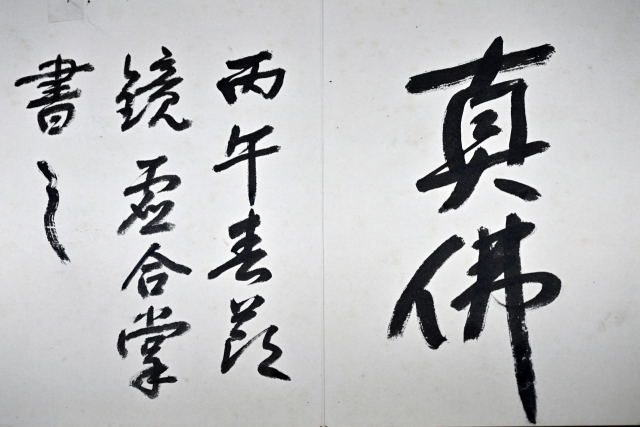 真佛
丙午春節
鏡虛合掌
書之